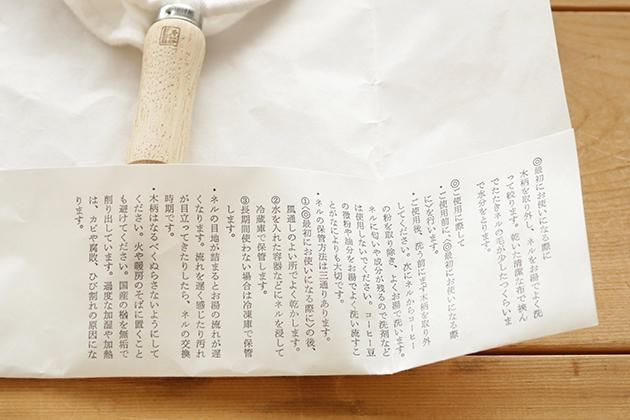 ◎最初にお使いになる際に
木柄を取り外し、ネルをお湯でよく洗
って絞ります。乾いた清潔な布で挟ん
でたたきネルの毛が少したつくらいま
で水分をとります。
◎ご使用に際して
・ご使用前に、〈◎最初にお使いになる際
に〉を行います。
・ご使用後、洗う前にまず木柄を取り外
してください。次にネルからコーヒー
の粉を取り除き、よくお湯で洗います。
ネルに匂いや成分が残るので洗剤など
は使用しないでください。コーヒー豆
の微粉や油分をお湯でよく洗い流すこ
とがなによりも大切です。
・ネルの保管方法は三通りあります。
①〈◎最初にお使いになる際に〉の後、
風通しのよい所でよく乾かします。
②水を入れた容器などにネルを浸して
冷蔵庫で保管します。
③長期間使わない場合は冷凍庫で保管
します。
・ネルの目地が詰まるとお湯の流れが遅
くなります。流れを遅く感じたり汚れ
が目立ってきたりしたら、ネルの交換
時期です。
・木柄はなるべくぬらさないようにして
ください。火や暖房のそばに置くこと
も避けてください。国産の楢を無垢で
削り出しています。過度な加湿や加熱
は、カビや腐敗、ひび割れの原因にな
ります。